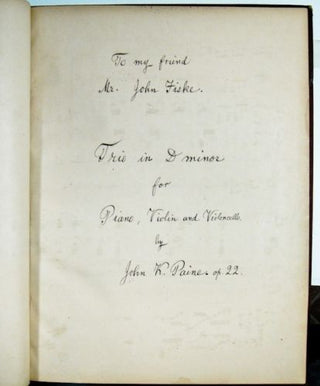 To my friend
Mr. John Fiske.
Trio in D minor
for
Piano, Violin and Violoncello.
by
John K. Paine. op. 22.